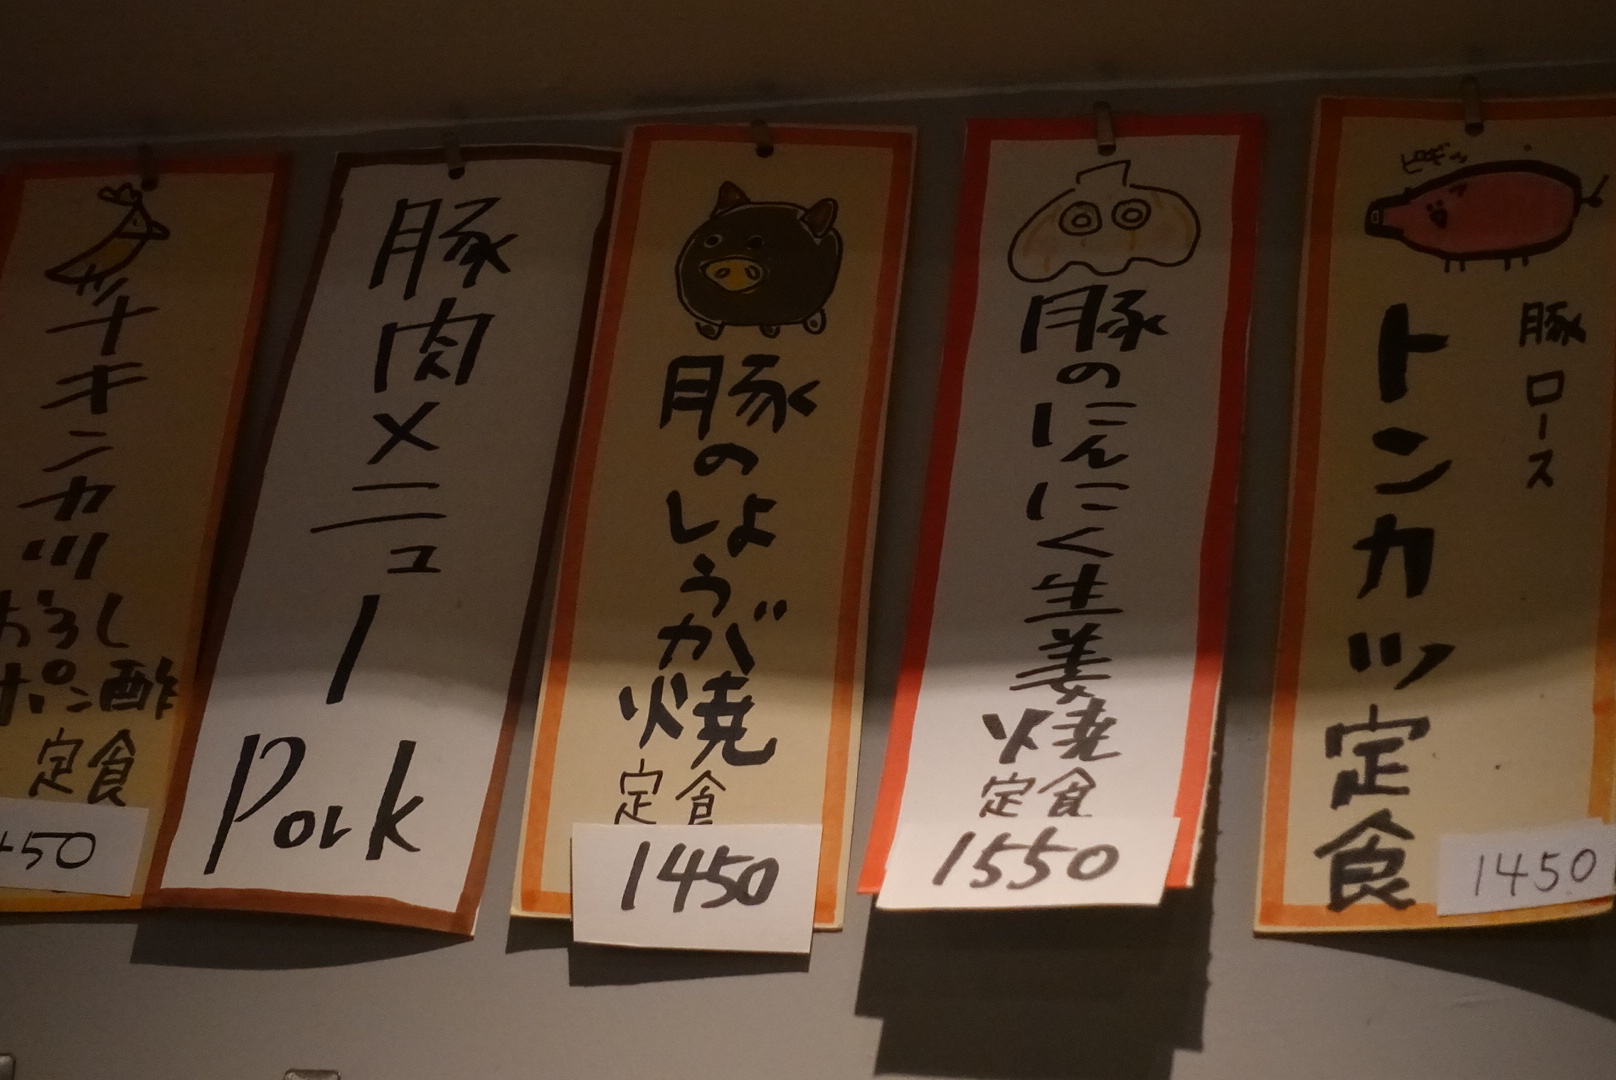 チキンカツ
おろし
ポン酢
定食
450
豚肉メニュー
Pork
豚のしょうが焼
定食
1450
豚のにんにく生姜焼
定食
1550
豚ロース
トンカツ定食
1450